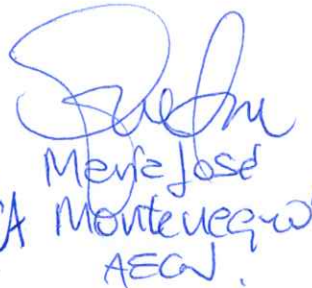 María José
CA Montenegro
AECN.